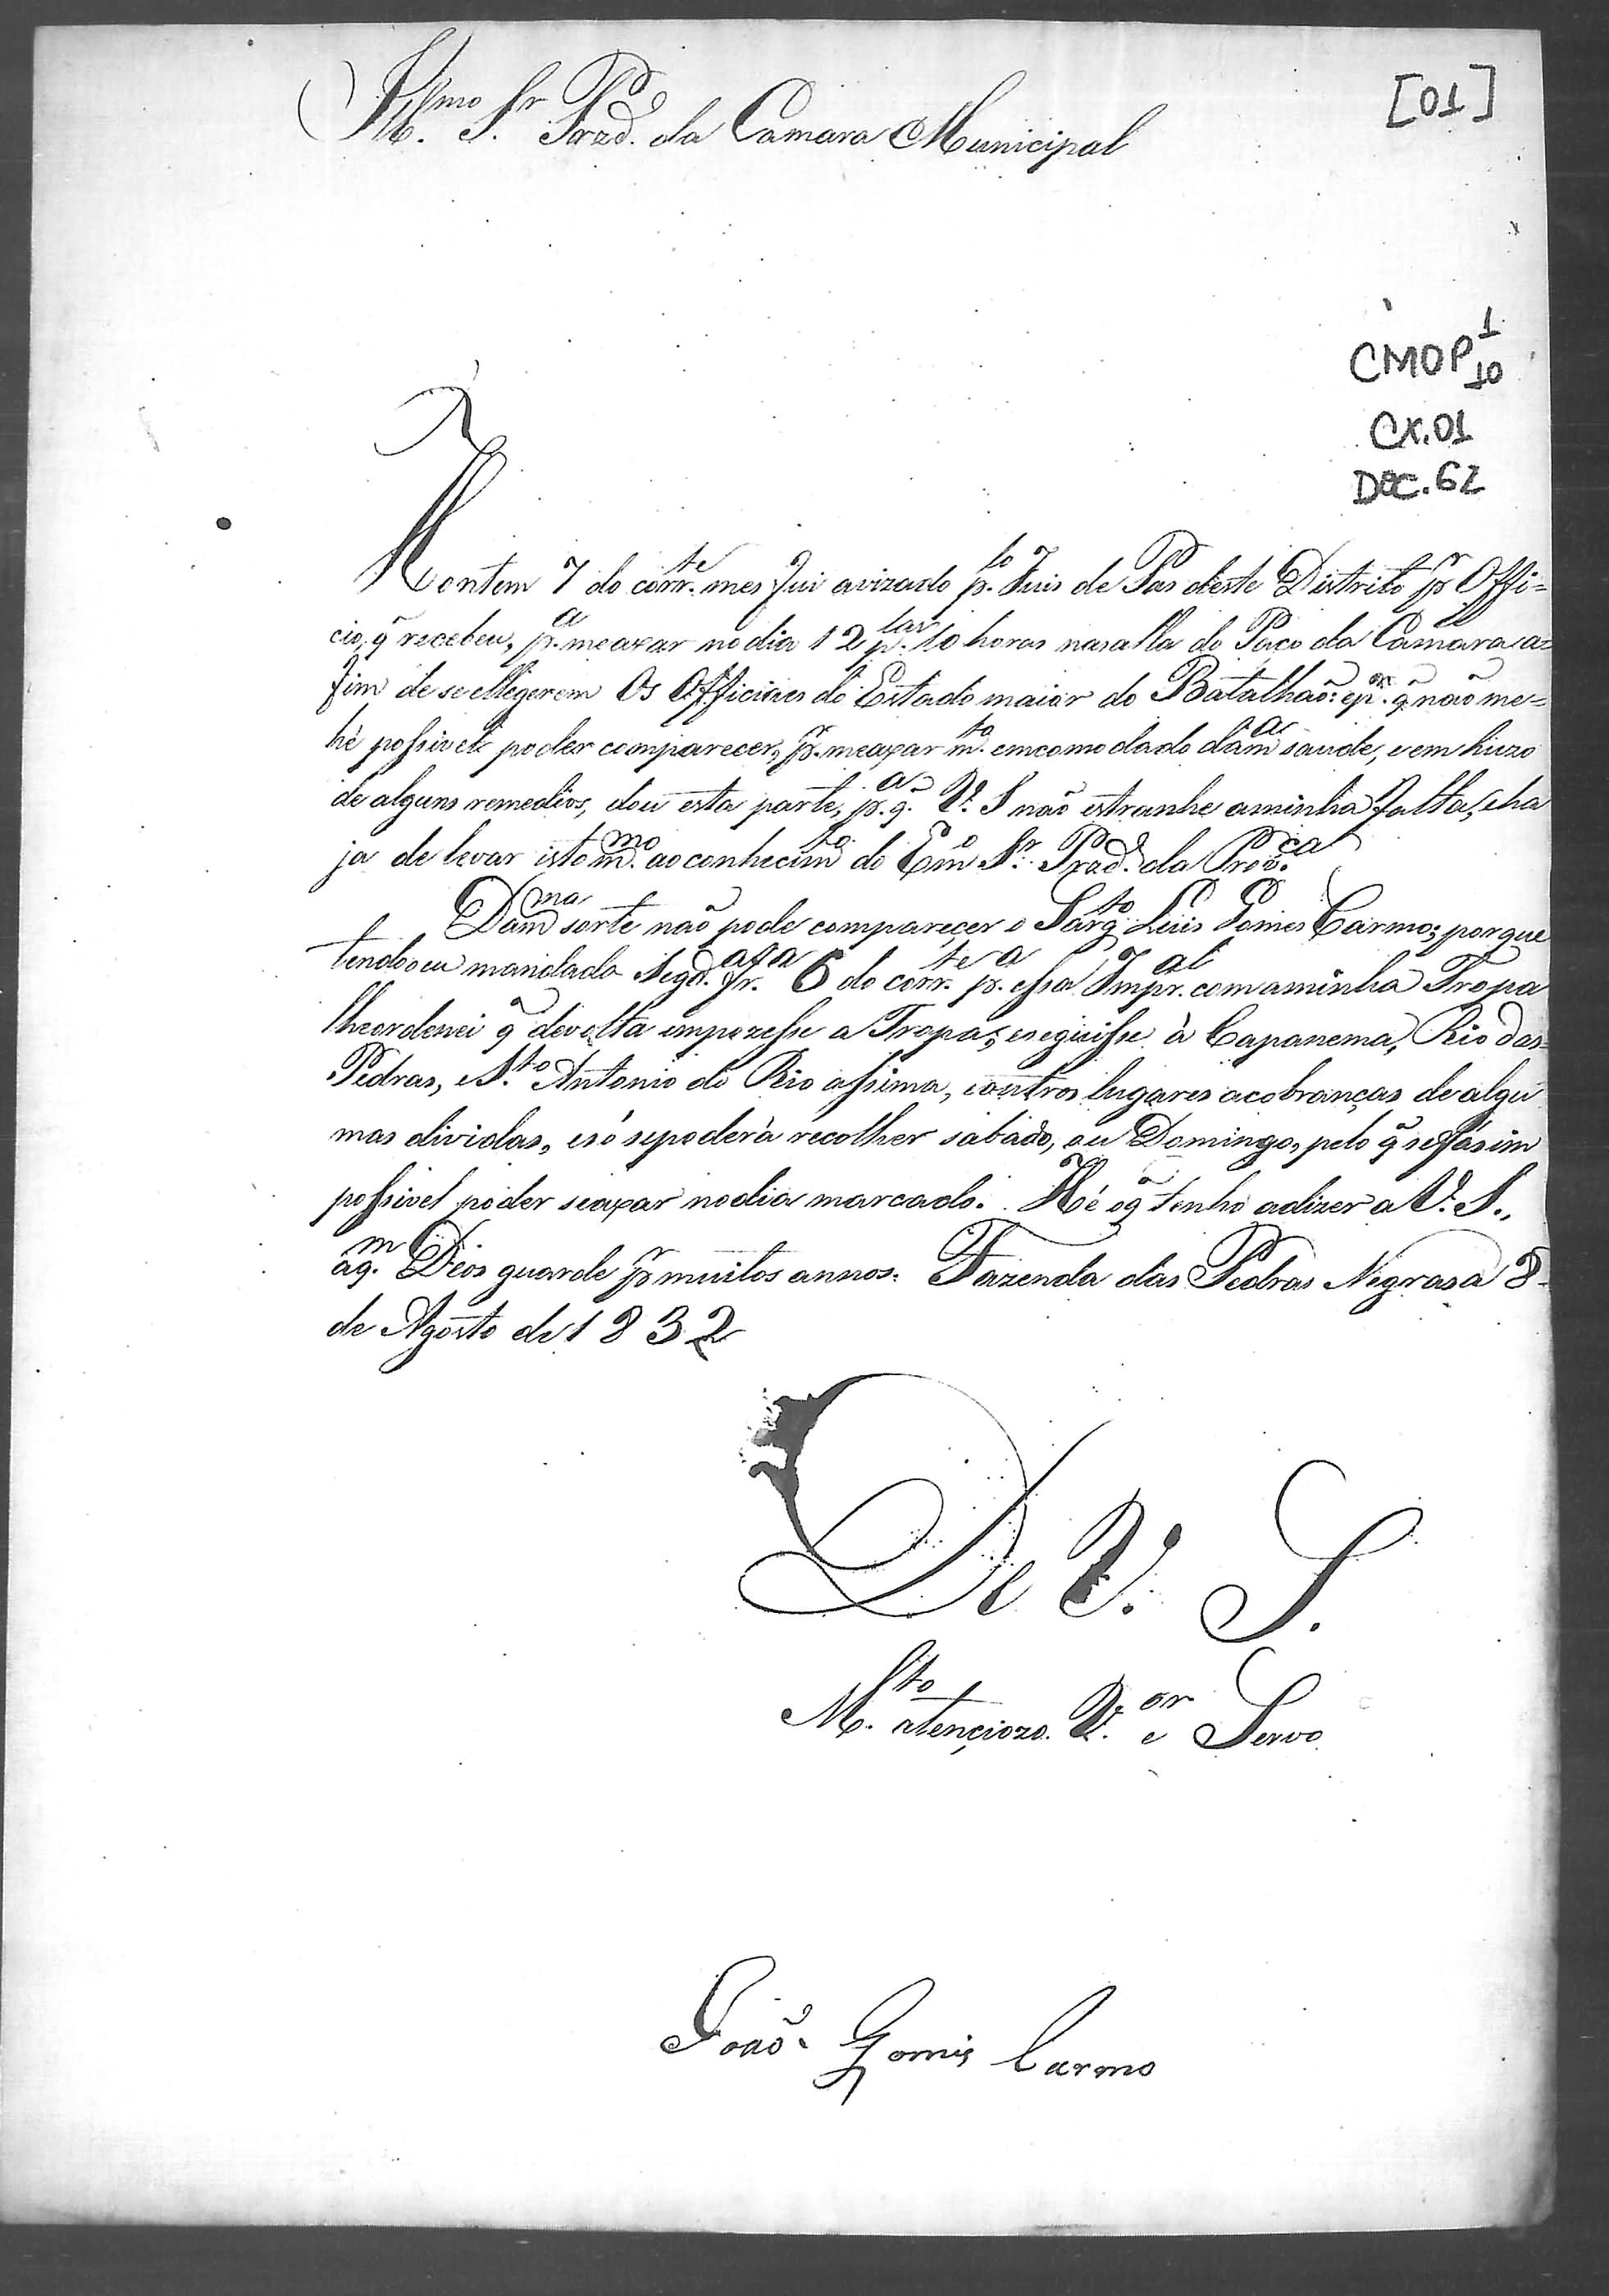 [01]
Ill.mo S.r Prezd.e da Camara Municipal
CMOP 1
10
CX.01
DOC.62
Hontem 7 do corr.te mes fui avizado p.lo Juis de Pas deste Distrito p.r Offi=
cio, q̃ recebeu, p.a me axar no dia 12 p.las 10 horas na salla do Paço da Camara a=
fim de se ellegerem Os Officiaes do Estado maior do Batalhaõ: e p.r q̃ naõ me=
hé possivel poder comparecer, p.r me axar m.to emcomodado da m.a saude, e em huzo
de alguns remedios, dou esta parte, p.a q̃ V. S não estranhe aminha falta, e ha
ja de levar isto m.mo ao conhecim.to do Em.o S.r Prezd.e da Prov.ca
Da m.ma sorte naõ pode compareçer o Sarg.to Luis Gomes Carmo; por que
tendo eu mandado Segd.a fr.a 6 do corr.te p.a essa Imp.al com aminha Tropa
lhe ordenei q̃ de volta empozesse a Tropa; e seguisse à Capanema, Rio das=
Pedras, e S.to Antonio do Rio assima, e outros lugares a cobranças de algu
mas dividas, e só se poderà recolher sabado, ou Domingo, pelo q̃ se fás im
possivel poder se axar no dia marcado. Hé o q̃ tenho a dizer a V. S.,
a q.m Deos guarde p.r muitos annos. Fazenda das Pedras Negras a 8
de Agosto de 1832
De V. S.
M.to atençiozo V.or e Servo
João Gomes Carmo